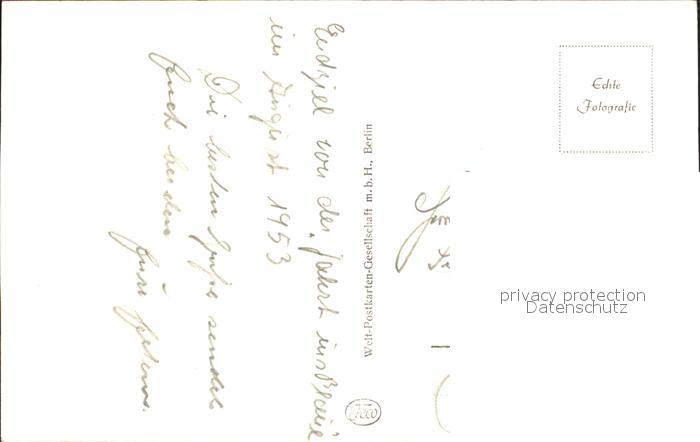 Endziel von der "Fahrt ins Blaue"
im August 1953
Die besten Grüße sendet
Euch beiden
Eure
Welt-Postkarten-Gesellschaft m.b.H., Berlin
Echte
Fotografie
privacy protection
Datenschutz